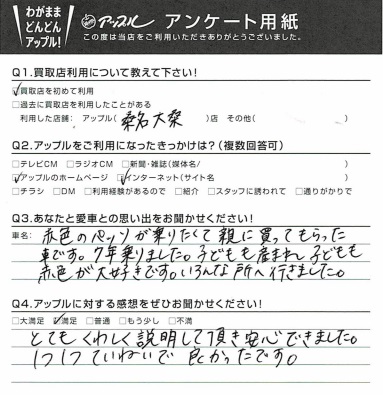 わがまま
どんどん
アップル!
アップル アンケート用紙
この度は当店をご利用いただきありがとうございました。
Q1.買取店利用について教えて下さい!
☑買取店を初めて利用
□過去に買取店を利用したことがある
利用した店舗: アップル( 桑名大桑 )店 その他( )
Q2.アップルをご利用になったきっかけは?(複数回答可)
□テレビCM □ラジオCM □新聞・雑誌(媒体名/ )
☑アップルのホームページ ☑インターネット(サイト名 )
□チラシ □DM □利用経験があるので □紹介 □スタッフに誘われて □通りがかりで
Q3.あなたと愛車との思い出をお聞かせください!
車名: 赤色のベッソが乗りたくて親に買ってもらった
車です。7年乗りました。子どもも産まれ子どもも
赤色が大好きです。いろんな所へ行きました。
Q4.アップルに対する感想をぜひお聞かせください!
□大満足 ☑満足 □普通 □もう少し □不満
とてもくわしく説明して頂き安心できました。
1つ1つていねいで良かったです。